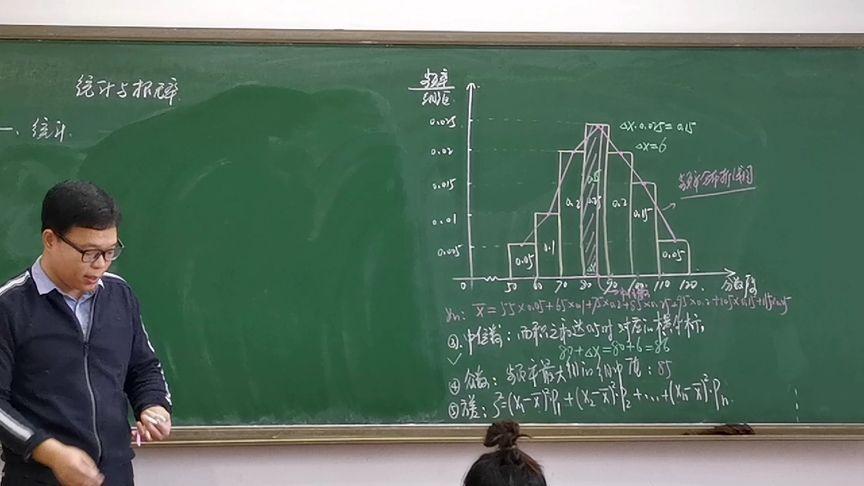 统计与概率
一、统计
频率
组距
0.025
0.02
0.015
0.01
0.005
Δx·0.025=0.15
Δx=6
频率分布折线图
0.05
0.1
0.2
0.25
0.2
0.15
0.05
0 50 60 70 80 90 100 110 120 分数
x̄=55×0.05+65×0.1+75×0.2+85×0.25+95×0.2+105×0.15+115×0.05
③中位数:面积之和达0.5时对应的横坐标。
80+Δx=80+6=86
④众数:频率最大组的组中值:85
⑤方差:S²=(x₁-x̄)²·P₁+(x₂-x̄)²·P₂+...+(xₙ-x̄)²·Pₙ